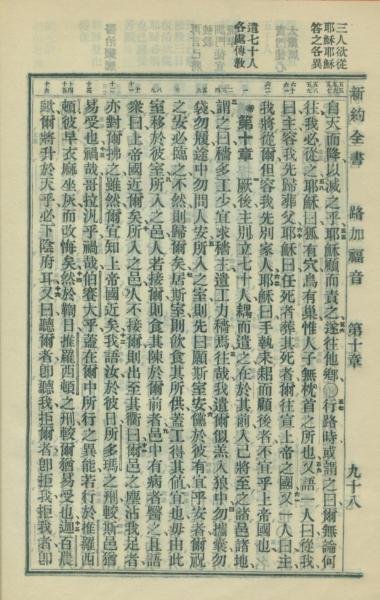 三人欲從
耶穌耶穌
答之各異
遣七十人
各處傳教
新約全書 路加福音 第十章 九十八
自天而降以滅之乎耶穌顧而責之遂往他鄉○行路時或謂之曰爾無論何
往我必從之耶穌曰狐有穴鳥有巢惟人子無枕首之所也又語一人曰從我
曰主容我先歸葬父耶穌曰任死者葬其死者爾往宣上帝之國又一人曰主
我將從爾但容我先別家人耶穌曰手執耒耜而顧後者不宜乎上帝國也
第十章 厥後主別立七十人耦而遣之在於其前入己將至之諸邑諸地
謂之曰穡多工少宜求穡主遣工力穡焉往哉我遣爾似羔入狼中勿攜囊勿
袋勿履途中勿問人安所入之室則先曰願斯室安儻於彼有宜乎安者爾祝
之安必臨之不然則歸爾矣居斯室則飲食其所供蓋工得其值宜也毋由此
室移於彼室所入之邑人若接爾則食其陳於爾前者邑中有病者醫之且語
衆曰上帝國近爾矣所入之邑人不接爾則出至其衢曰爾邑之塵沾我足者
亦對爾拂之雖然爾宜知上帝國近矣我語汝於彼日所多瑪之刑較斯邑猶
易受也禍哉哥拉汎乎禍哉伯賽大乎蓋在爾中所行之異能若行於推羅西
頓彼早衣麻坐灰而改悔矣然於鞫日推羅西頓之刑較爾猶易受也迦百農
歟爾將升於天乎必下陰府耳又曰聽爾者卽聽我拒爾者卽拒我拒我者卽